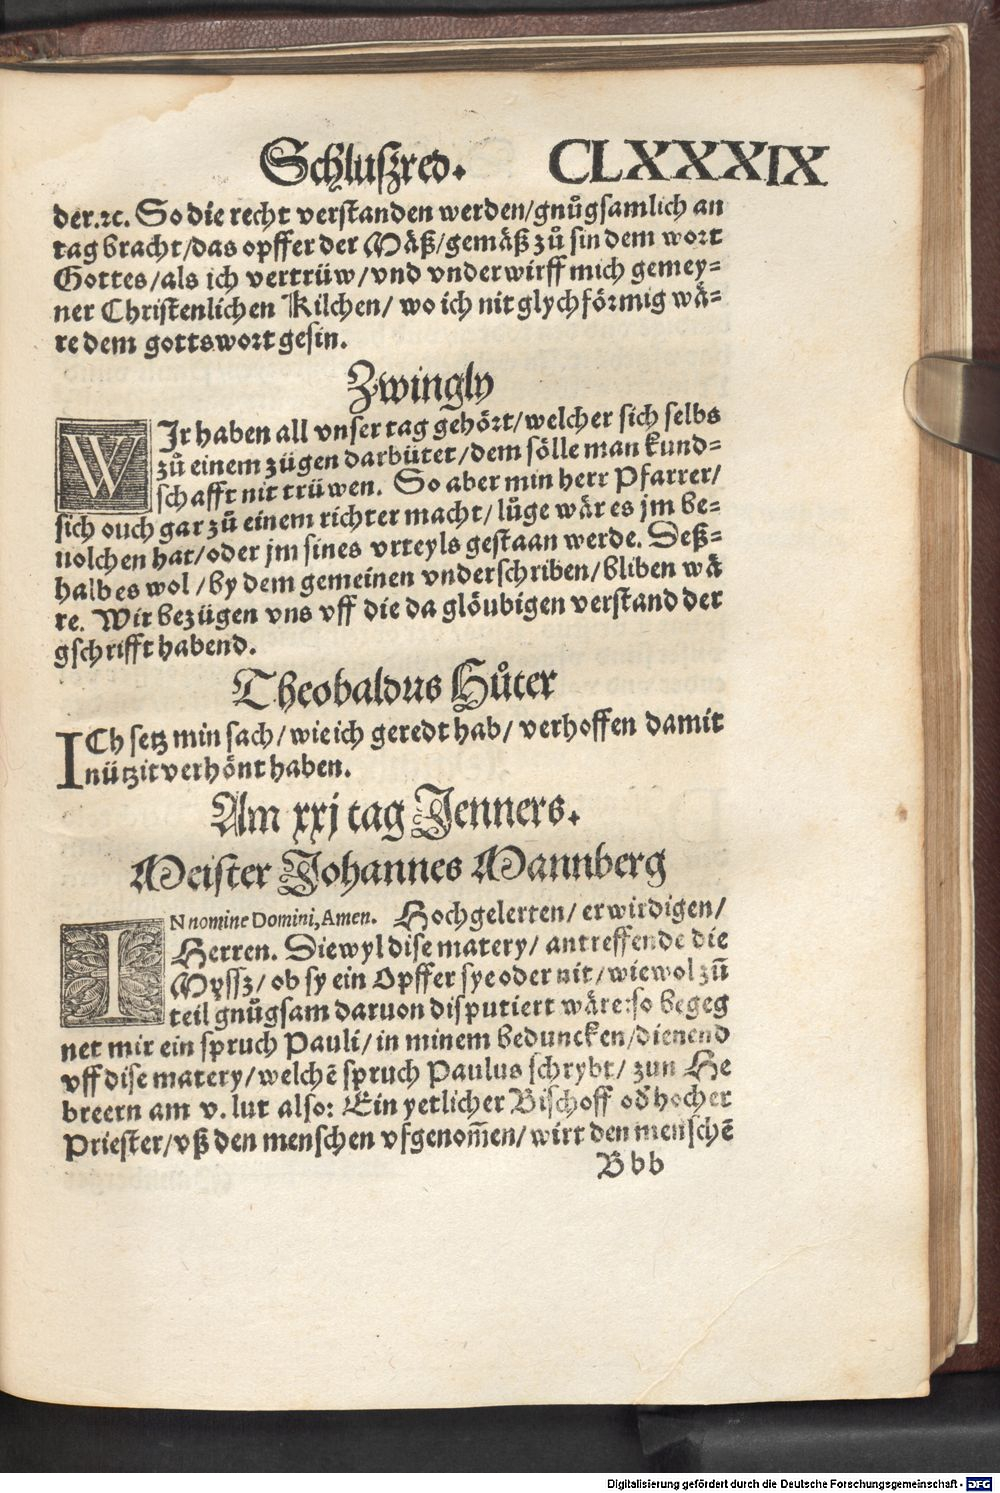 Schluszred. CLXXXIX
der.ꝛc. So die recht verstanden werden/gnuͦgsamlich an
tag bracht/das opffer der Mäß/gemäß zuͦ sin dem wort
Gottes/als ich vertrüw/vnd vnderwirff mich gemey⸗
ner Christenlichen Kilchen/ wo ich nit glychförmig wä⸗
re dem gottswort gesin.
Zwingly
WJr haben all vnser tag gehört/welcher sich selbs
zuͦ einem zügen darbütet/dem sölle man kund⸗
schafft nit trüwen. So aber min herr Pfarrer/
sich ouch gar zuͦ einem richter macht/luͦge wär es jm be⸗
uolchen hat/oder jm sines vrteyls gestaan werde. Deß⸗
halb es wol/by dem gemeinen vnderschriben/bliben wä
re. Wir bezügen vns vff die da glöubigen verstand der
gschrifft habend.
Theobaldus Huͦter
ICh setz min sach/wie ich geredt hab/ verhoffen damit
nützit verhönt haben.
Am xxj tag Jenners.
Meister Johannes Mannberg
IN nomine Domini, Amen. Hochgelerten/ erwirdigen/
Herren. Diewyl dise matery/ antreffende die
Myssz/ ob sy ein Opffer sye oder nit/wiewol zuͦ
teil gnuͦgsam daruon disputiert wäre:so begeg
net mir ein spruch Pauli/in minem beduncken/dienend
vff dise matery/welchē spruch Paulus schrybt/ zun He
breern am v. lut also: Ein yetlicher Bischoff od̓ hocher
Priester/vß den menschen vfgenom̄en/wirt den menschē
Bbb
Digitalisierung gefördert durch die Deutsche Forschungsgemeinschaft - DFG